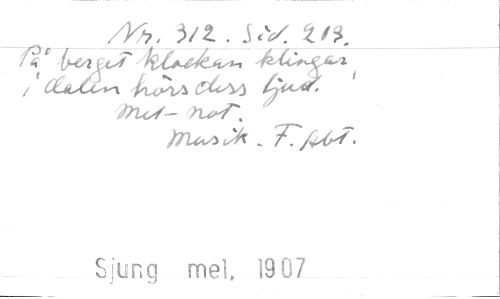 Nr. 312. Sid. 213.
På berget klockan klingar,
i dalen hörs dess ljud.
Met-not.
Musik. F. Abt.
Sjung mel. 1907